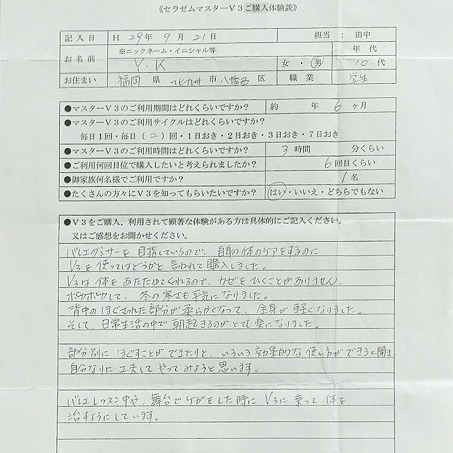 《セラゼムマスターV3ご購入体験談》
記入日 H 29年 9月 21日 担当：田中
お名前 ※ニックネーム・イニシャル等 Y.K 女・男： 10 年代
お住まい 福岡 県 北九州 市 八幡西 区 職業 学生
●マスターV3のご利用期間はどれくらいですか？ 約 年 6 ヶ月
●マスターV3のご利用サイクルはどれくらいですか？
毎日1回・毎日（2）回・1日おき・2日おき・3日おき・7日おき
●マスターV3のご利用時間はどれくらいですか？ 3 時間 分くらい
●ご利用何回目位で購入したいと考えられましたか？ 6 回目くらい
●御家族何名様でご利用ですか？ 1 名
●たくさんの方々にV3を知ってもらいたいですか？ はい・いいえ・どちらでもない
●V3をご購入、利用されて顕著な体験がある方は具体的にご記入ください。
又はご感想をお聞かせください。
バレエダンサーを目指しているので、自身の体のケアをするのに
V3を使ってはどうかと言われて購入しました。
V3は体をあたためてくれるので、カゼをひくことがありません。
ポカポカして、冬の寒さも平気になりました。
背中のほぐされた部分が柔らかくなって、全身が軽くなりました。
そして、日常生活の中で朝起きるのがとても楽になりました。
部分別にほぐすことができたりと、いろいろ効果的な使い方ができると聞き
自分なりに工夫してやってみようと思います。
バレエレッスン中や、舞台でケガをした時にV3に乗って体を
治すようにしています。